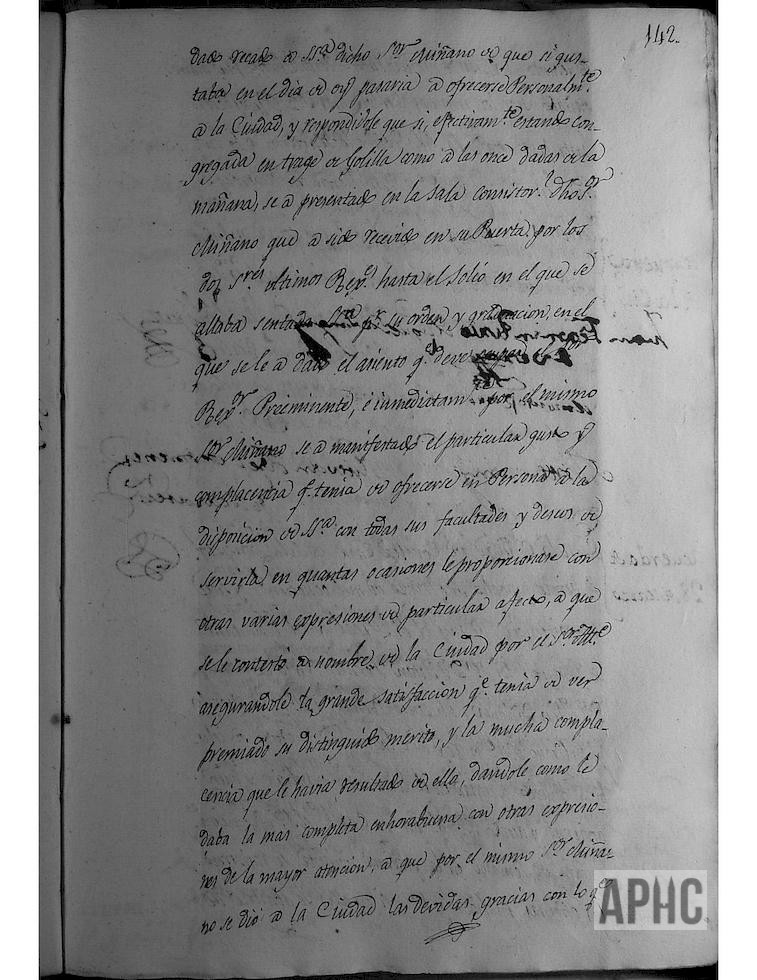 142.
dado recado a SSª dicho Sor Miñano de que si gus-
taba en el dia de oy pasaria a ofrecerse Personalmte
a la Ciudad, y respondidole que si, efectivamte estando con-
gregada en trage de Golilla como a las once dadas de la
mañana, se a presentado en la Sala consistorl dho Sor
Miñano que a sido recevido en su Puerta por los
dos Sres ultimos Rexs hasta el Solio en el que se
allaba sentada SSª pr su orden y graduacion, en el
que se le a dado el asiento qe deve el Sor
Rexor Preeminente, é inmediatamte por el mismo
Sor Miñano se a manifestado el particular gusto y
complacencia qe tenia de ofrecerse en Persona a la
disposicion de SSª con todas sus facultades y deseos de
servirla en quantas ocasiones le proporcionase con
otras varias expresiones de particular afecto, a que
se le contestó a nombre de la Ciudad por el Sor Alte
asegurandole la grande satisfaccion qe tenia de ver
premiado su distinguido merito, y la mucha compla-
cencia que le havia resultado de ella, dandole como le
daba la mas completa enhorabuena con otras expresio-
nes de la mayor atencion, a que por el mismo Sor Miña-
no se dió a la Ciudad las devidas gracias con lo qe
APHC